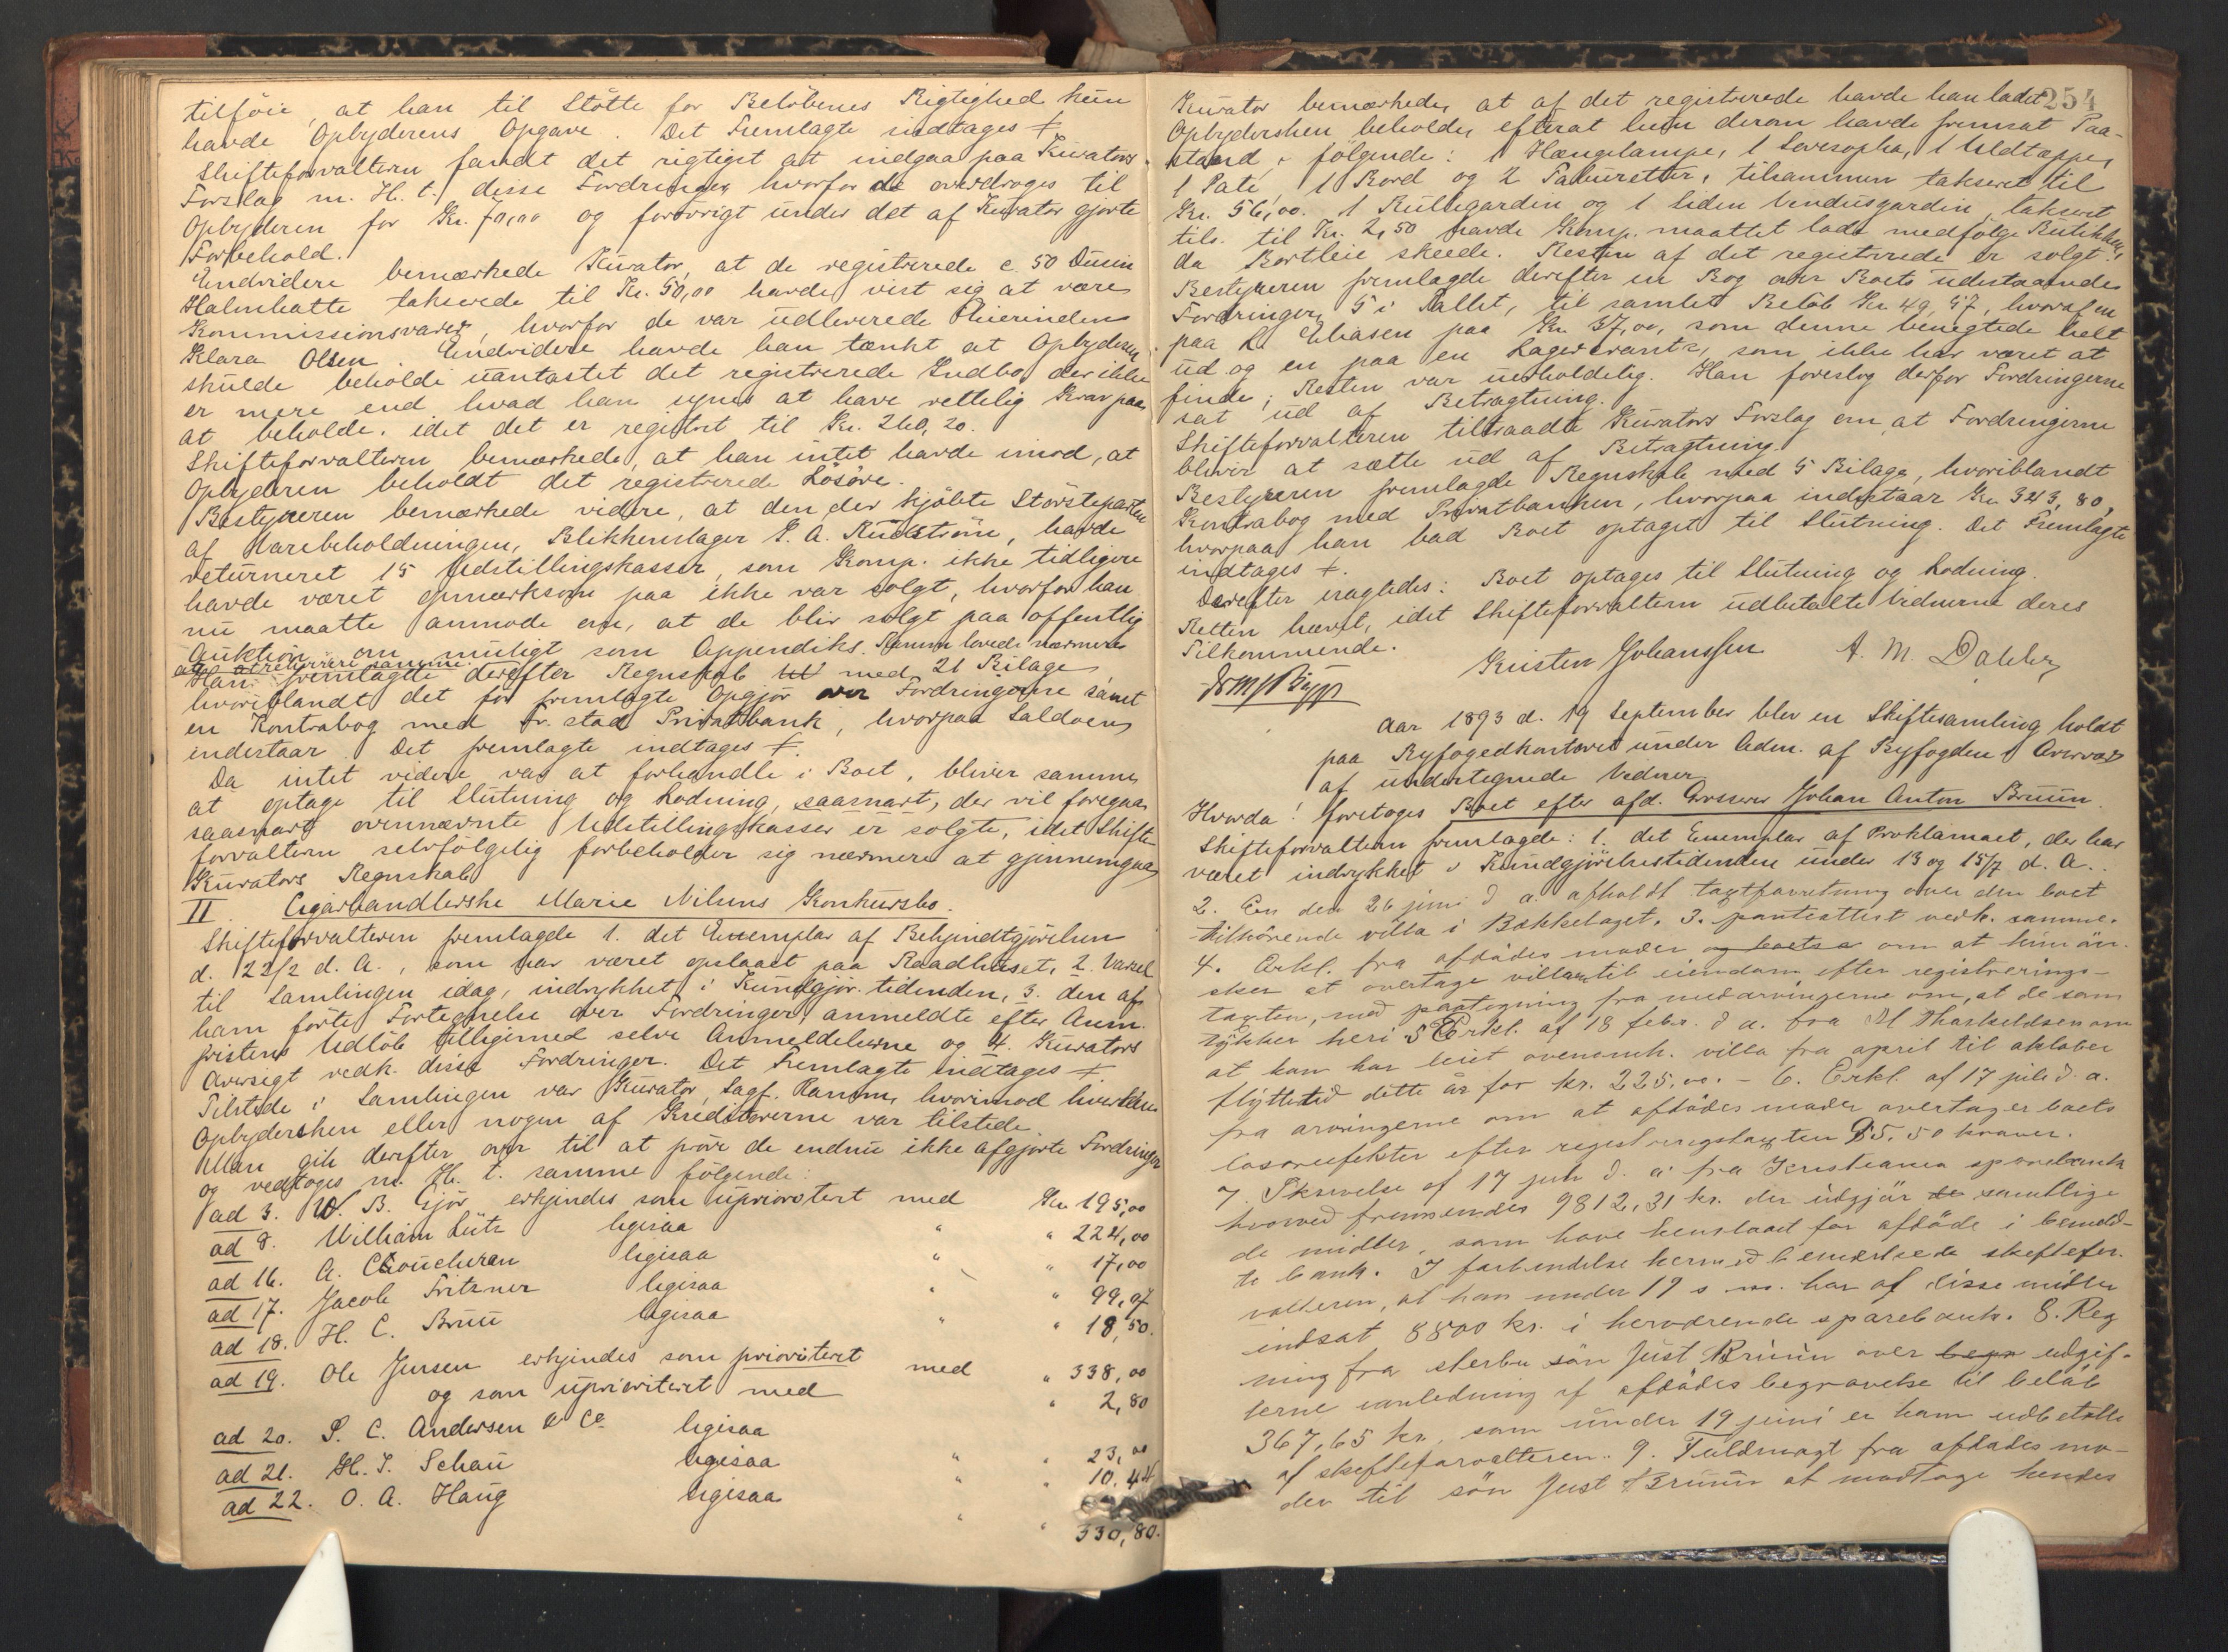 tilføie, at han til Støtte for Beløbenes Rigtighed kun
havde Opbyderens Opgave. Det Fremlagte indtages ┼.
Skifteforvalteren fandt det rigtigst at indgaa paa Kurators
Forslag m. H. t. disse Fordringer, hvorfor de overdroges til
Opbyderen for Kr. 70,00 og forøvrigt under det af Kurator gjorte
Forbehold.
Endvidere bemærkede Kurator, at de registrerede c. 50 Dusin
Halmhatte takserede til Kr. 50,00 havde vist sig at være
Kommissionsvarer, hvorfor de var udleverede Eierinden
Klara Olsen. Endvidere havde han tænkt at Opbyderen
skulde beholde uantastet det registrerede Indbo, der ikke
er mere end hvad han synes at have rettelig Krav paa
at beholde, idet det er registrert til Kr. 260,20.
Skifteforvalteren bemærkede, at han intet havde imod, at
Opbyderen beholdt det registrerede Løsøre.
Bestyreren bemærkede videre, at den, der kjøbte Størsteparten
af Varebeholdningen, Blikkenslager G. A. Rudstrøm, havde
returneret 15 Udstillingskasser, som Komp. ikke tidligere
havde været opmærksom paa ikke var solgt, hvorfor han
nu maatte anmode om, at de blir solgt paa offentlig
Auktion om muligt som Appendiks. Hamm lovede nærmere
at rekvirere samme.
Han fremlagte derefter Regnskab til med 21 Bilage
hvoriblandt det før fremlagte Opgjør over Fordringerne samt
en Kontrabog med Fr.stad Privatbank, hvorpaa Saldoen
indestaar. Det fremlagte indtages ┼.
Da intet videre var at forhandle i Boet, bliver samme
at optage til Slutning og Lodning, saasnart, der vil foregaa
saasnart ovennævnte Udstillingskasser er solgte, idet Skifte-
forvalteren selvfølgelig forbeholder sig nærmere at gjennemgaa
Kurators Regnskab.
II. Cigarhandlerske Marie Nilsens Konkursbo.
Skifteforvalteren fremlagde 1. det Exemplar af Bekjendtgjørelsen
d. 22/2 d. A., som har været opslaaet paa Raadhuset, 2. Varsel
til Samlingen idag, indrykket i Kundgjør. tidenden, 3. den af
ham førte Fortegnelse over Fordringer, anmeldte efter Anm.
fristens Udløb tilligemed selve Anmeldelserne og 4. Kurators
Oversigt vedk. disse Fordringer. Det Fremlagte indtages ┼
Tilstede i Samlingen var Kurator, Sagf. Hamm, hvorimod hverken
Opbydersken eller nogen af Kreditorerne var tilstede.
Man gik derefter over til at prøve de endnu ikke afgjorte Fordringer
og vedtoges m. H. t. samme følgende:
ad 3. W. B. Gjør erkjendes som uprioritert med Kr. 195,00
ad 8. William Lütz ligesaa " " 224,00
ad 16. A. ligesaa " " 17,00
ad 17. Jacob Fritzner ligesaa " " 99,97
ad 18. H. C. Bruu ligesaa " " 18,50.
ad 19. Ole Jensen erkjendes som prioriteret med " 338,00
og som uprioriteret med " 2,80
ad 20. S. C. Andersen & Co ligesaa
ad 21. H. J. Schau ligesaa " " 23,00
ad 22. O. A. Haug ligesaa " " 10,44
" " 330,80.
254
Kurator bemærkede, at af det registrerede havde han ladet
Opbydersken beholde, efterat hun derom havde fremsat Paa-
stand, følgende: 1 Hængelampe, 1 Sovesopha, 1 Uldtæppe,
1 Paté, 1 Bord og 2 Taburetter, tilsammen takseret til
Kr. 56,00. 1 Rullegardin og 1 liden Vindusgardin, takseret
tils. til Kr. 2,50 havde Komp. maattet lade medfølge Butikken,
da Bortleie skeede. Resten af det registrerede er solgt.
Bestyreren fremlagde derefter en Bog over Boets udestaaende
Fordringer, 5 i Tallet, til samlet Beløb Kr. 49,57, hvoraf en
paa L. Eliasen paa Kr. 37,00, som denne benegtede helt
ud og en paa en Lagercrantz, som ikke har været at
finde; Resten var uerholdelig. Han foreslog derfor Fordringerne
sat ud af Betragtning.
Skifteforvalteren tiltraadte Kurators Forslag om, at Fordringerne
bliver at sætte ud af Betragtning.
Bestyreren fremlagde Regnskab med 5 Bilage, hvoriblandt
Kontrabog med Privatbanken, hvorpaa indestaar Kr. 323,80,
hvorpaa han bad Boet optaget til Slutning. Det Fremlagte
indtages ┼.
Derefter eragtedes: Boet optages til Slutning og Lodning.
Retten hævet, idet Skifteforvalteren udbetalte Vidnerne deres
Tilkommende.
Kristen Johanssen A. M. Dahler
Aar 1893 d. 19 September blev en Skiftesamling holdt
paa Byfogedkontoret under Adm. af Byfogden i Overvær
af undertegnede Vidner.
Hvorda! foretoges Boet efter afd. Grosserer Johan Anton Bruun.
Skifteforvalteren fremlagde: 1. det Exemplar af Proklamaet, der har
været indrykket i Kundgjørelsestidenden under 13 og 15/7 d. A..
2. En den 26 juni d. a. afholdt taxtforretning over den boet
tilhørende villa i Bækkelaget. 3. pantattest vedk. samme.
4. Erkl. fra afdødes moder og boets om at hun øn-
sker at overtage villaen til eiendom efter registrerings-
taxten, med paategning fra medarvingerne om, at de sam-
tykker heri 5 Erkl. af 18 febr. d a. fra M Thorkildsen om
at han har leiet ovenomh. villa fra april til oktober
flyttetid dette år for kr. 225,00. - 6. Erkl. af 17 juli d. a.
fra arvingerne om at afdødes moder overtager boets
løsøreefekter efter registreringstaxten 85,50 kroner.
7. Skrivelse af 17 juli d. a. fra Kristiania sparebank
hvorved fremsendes 9812,31 kr. der udgjør de samtlige
de midler, som have henstaaet for afdøde i bemeld-
te bank. I forbindelse hermed bemærkede skiftefor-
valteren, at han under 19 s. m. har af disse midler
indsat 8800 kr. i herværende sparebank. 8. Reg-
ning fra sterbu søn Just Bruun over begr udgif-
terne i anledning af afdødes begravelse til beløb
367,65 kr. som under 19 juni er ham udbetalte
af skifteforvalteren. 9. Fuldmagt fra afdødes mo-
der til søn Just Bruun at modtage hendes